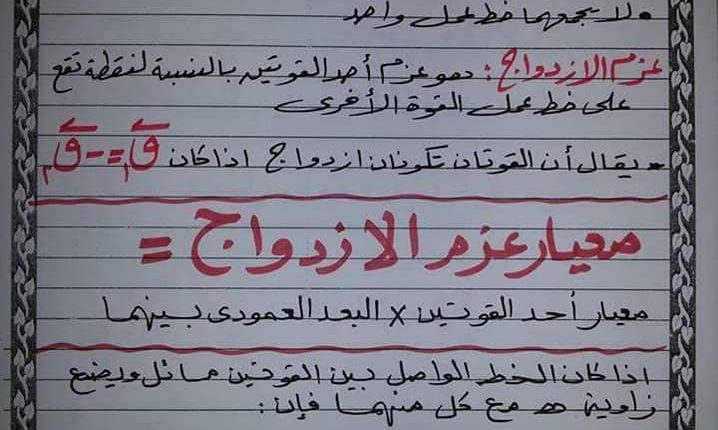 • لا يجمعهما خط عمل واحد
عزم الازدواج: هو عزم أحد القوتين بالنسبة لنقطة تقع
على خط عمل القوة الأخرى
• يقال أن القوتان تكونان ازدواج اذا كان ق١ = - ق٢
معيار عزم الازدواج =
معيار أحد القوتين × البعد العمودى بينهما
اذا كان الخط الواصل بين القوتين مائل ويصنع
زاوية ھ مع كل منهما فإن: